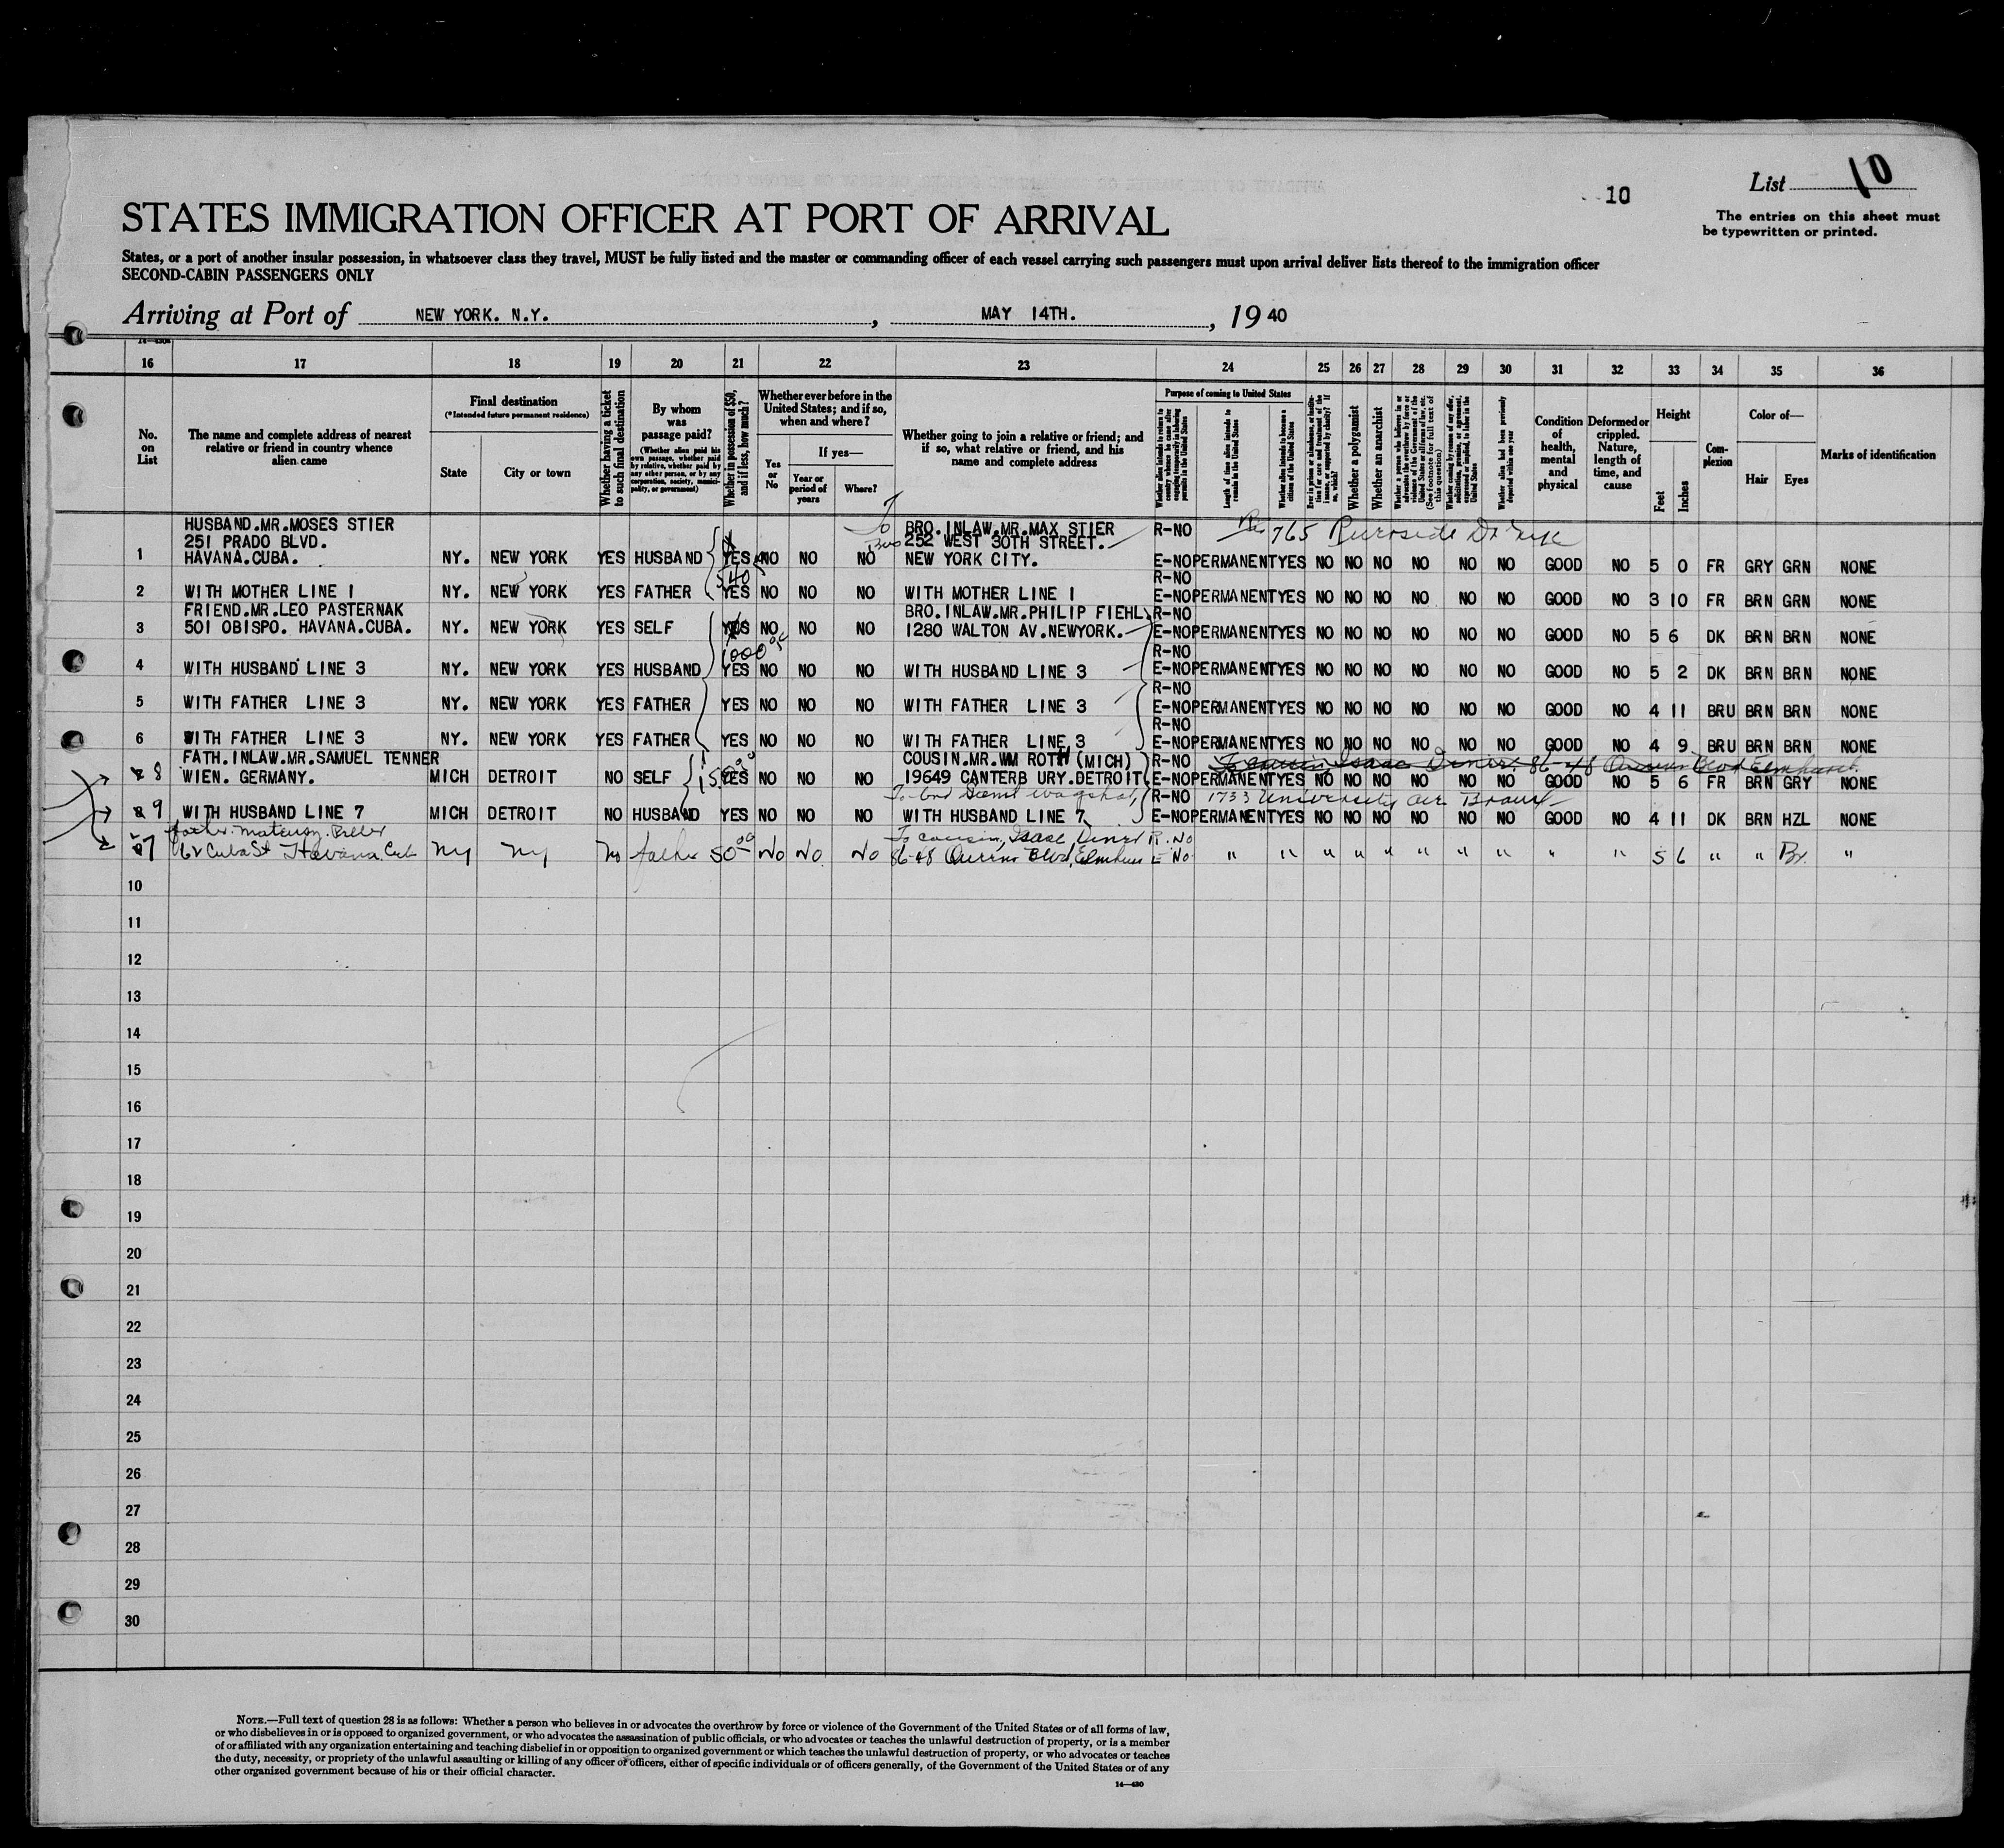 10
List 10
The entries on this sheet must
be typewritten or printed.
STATES IMMIGRATION OFFICER AT PORT OF ARRIVAL
States, or a port of another insular possession, in whatsoever class they travel, MUST be fully listed and the master or commanding officer of each vessel carrying such passengers must upon arrival deliver lists thereof to the immigration officer
SECOND-CABIN PASSENGERS ONLY
Arriving at Port of NEW YORK. N.Y. , MAY 14TH. , 19 40
16 17 18 19 20 21 22 23 24 25 26 27 28 29 30 31 32 33 34 35 36
No. on List
The name and complete address of nearest relative or friend in country whence alien came
Final destination
(*Intended future permanent residence)
State
City or town
Whether having a ticket to such final destination
By whom was passage paid?
(Whether alien paid his own passage, whether paid by relative, whether paid by any other person, or by any corporation, society, municipality, or government)
Whether in possession of $50, and if less, how much?
Whether ever before in the United States; and if so, when and where?
Yes or No
If yes—
Year or period of years
Where?
Whether going to join a relative or friend; and if so, what relative or friend, and his name and complete address
Purpose of coming to United States
Length of time alien intends to remain in the United States
Whether alien intends to become a citizen of the United States
Whether a polygamist
Whether an anarchist
Condition of health, mental and physical
Deformed or crippled. Nature, length of time, and cause
Height
Feet
Inches
Complexion
Color of—
Hair
Eyes
Marks of identification
HUSBAND.MR.MOSES STIER BRO.INLAW.MR.MAX STIER R-NO 765
251 PRADO BLVD. 252 WEST 30TH STREET.
1 HAVANA.CUBA. NY. NEW YORK YES HUSBAND YES NO NO NO NEW YORK CITY. E-NO PERMANENT YES NO NO NO NO NO NO GOOD NO 5 0 FR GRY GRN NONE
540 R-NO
2 WITH MOTHER LINE 1 NY. NEW YORK YES FATHER YES NO NO NO WITH MOTHER LINE 1 E-NO PERMANENT YES NO NO NO NO NO NO GOOD NO 3 10 FR BRN GRN NONE
FRIEND.MR.LEO PASTERNAK BRO.INLAW.MR.PHILIP FIEHL R-NO
3 501 OBISPO. HAVANA.CUBA. NY. NEW YORK YES SELF YES NO NO NO 1280 WALTON AV.NEWYORK. E-NO PERMANENT YES NO NO NO NO NO NO GOOD NO 5 6 DK BRN BRN NONE
1000 R-NO
4 WITH HUSBAND LINE 3 NY. NEW YORK YES HUSBAND YES NO NO NO WITH HUSBAND LINE 3 E-NO PERMANENT YES NO NO NO NO NO NO GOOD NO 5 2 DK BRN BRN NONE
R-NO
5 WITH FATHER LINE 3 NY. NEW YORK YES FATHER YES NO NO NO WITH FATHER LINE 3 E-NO PERMANENT YES NO NO NO NO NO NO GOOD NO 4 11 BRU BRN BRN NONE
R-NO
6 WITH FATHER LINE 3 NY. NEW YORK YES FATHER YES NO NO NO WITH FATHER LINE 3 E-NO PERMANENT YES NO NO NO NO NO NO GOOD NO 4 9 BRU BRN BRN NONE
FATH.INLAW.MR.SAMUEL TENNER COUSIN.MR.WM ROTH (MICH) R-NO To cousin Isaac Diner 86-48 Queens Blvd Elmhurst.
8 WIEN. GERMANY. MICH DETROIT NO SELF YES NO NO NO 19649 CANTERB URY.DETROIT E-NO PERMANENT YES NO NO NO NO NO NO GOOD NO 5 6 FR BRN GRY NONE
R-NO 1733 University Ave Bronx
9 WITH HUSBAND LINE 7 MICH DETROIT NO HUSBAND YES NO NO NO WITH HUSBAND LINE 7 E-NO PERMANENT YES NO NO NO NO NO NO GOOD NO 4 11 DK BRN HZL NONE
father. To cousin, Isaac Diner R. No
7 Cuba St Havana Cub NY NY No father 50 00 No No No 86-48 Queens Blvd, Elmhurs E-No " " " " " " " " " " 5 6 " " Br. "
10
11
12
13
14
15
16
17
18
19
20
21
22
23
24
25
26
27
28
29
30
NOTE.—Full text of question 28 is as follows: Whether a person who believes in or advocates the overthrow by force or violence of the Government of the United States or of all forms of law,
or who disbelieves in or is opposed to organized government, or who advocates the assassination of public officials, or who advocates or teaches the unlawful destruction of property, or is a member
of or affiliated with any organization entertaining and teaching disbelief in or opposition to organized government or which teaches the unlawful destruction of property, or who advocates or teaches
the duty, necessity, or propriety of the unlawful assaulting or killing of any officer or officers, either of specific individuals or of officers generally, of the Government of the United States or of any
other organized government because of his or their official character.
14—430